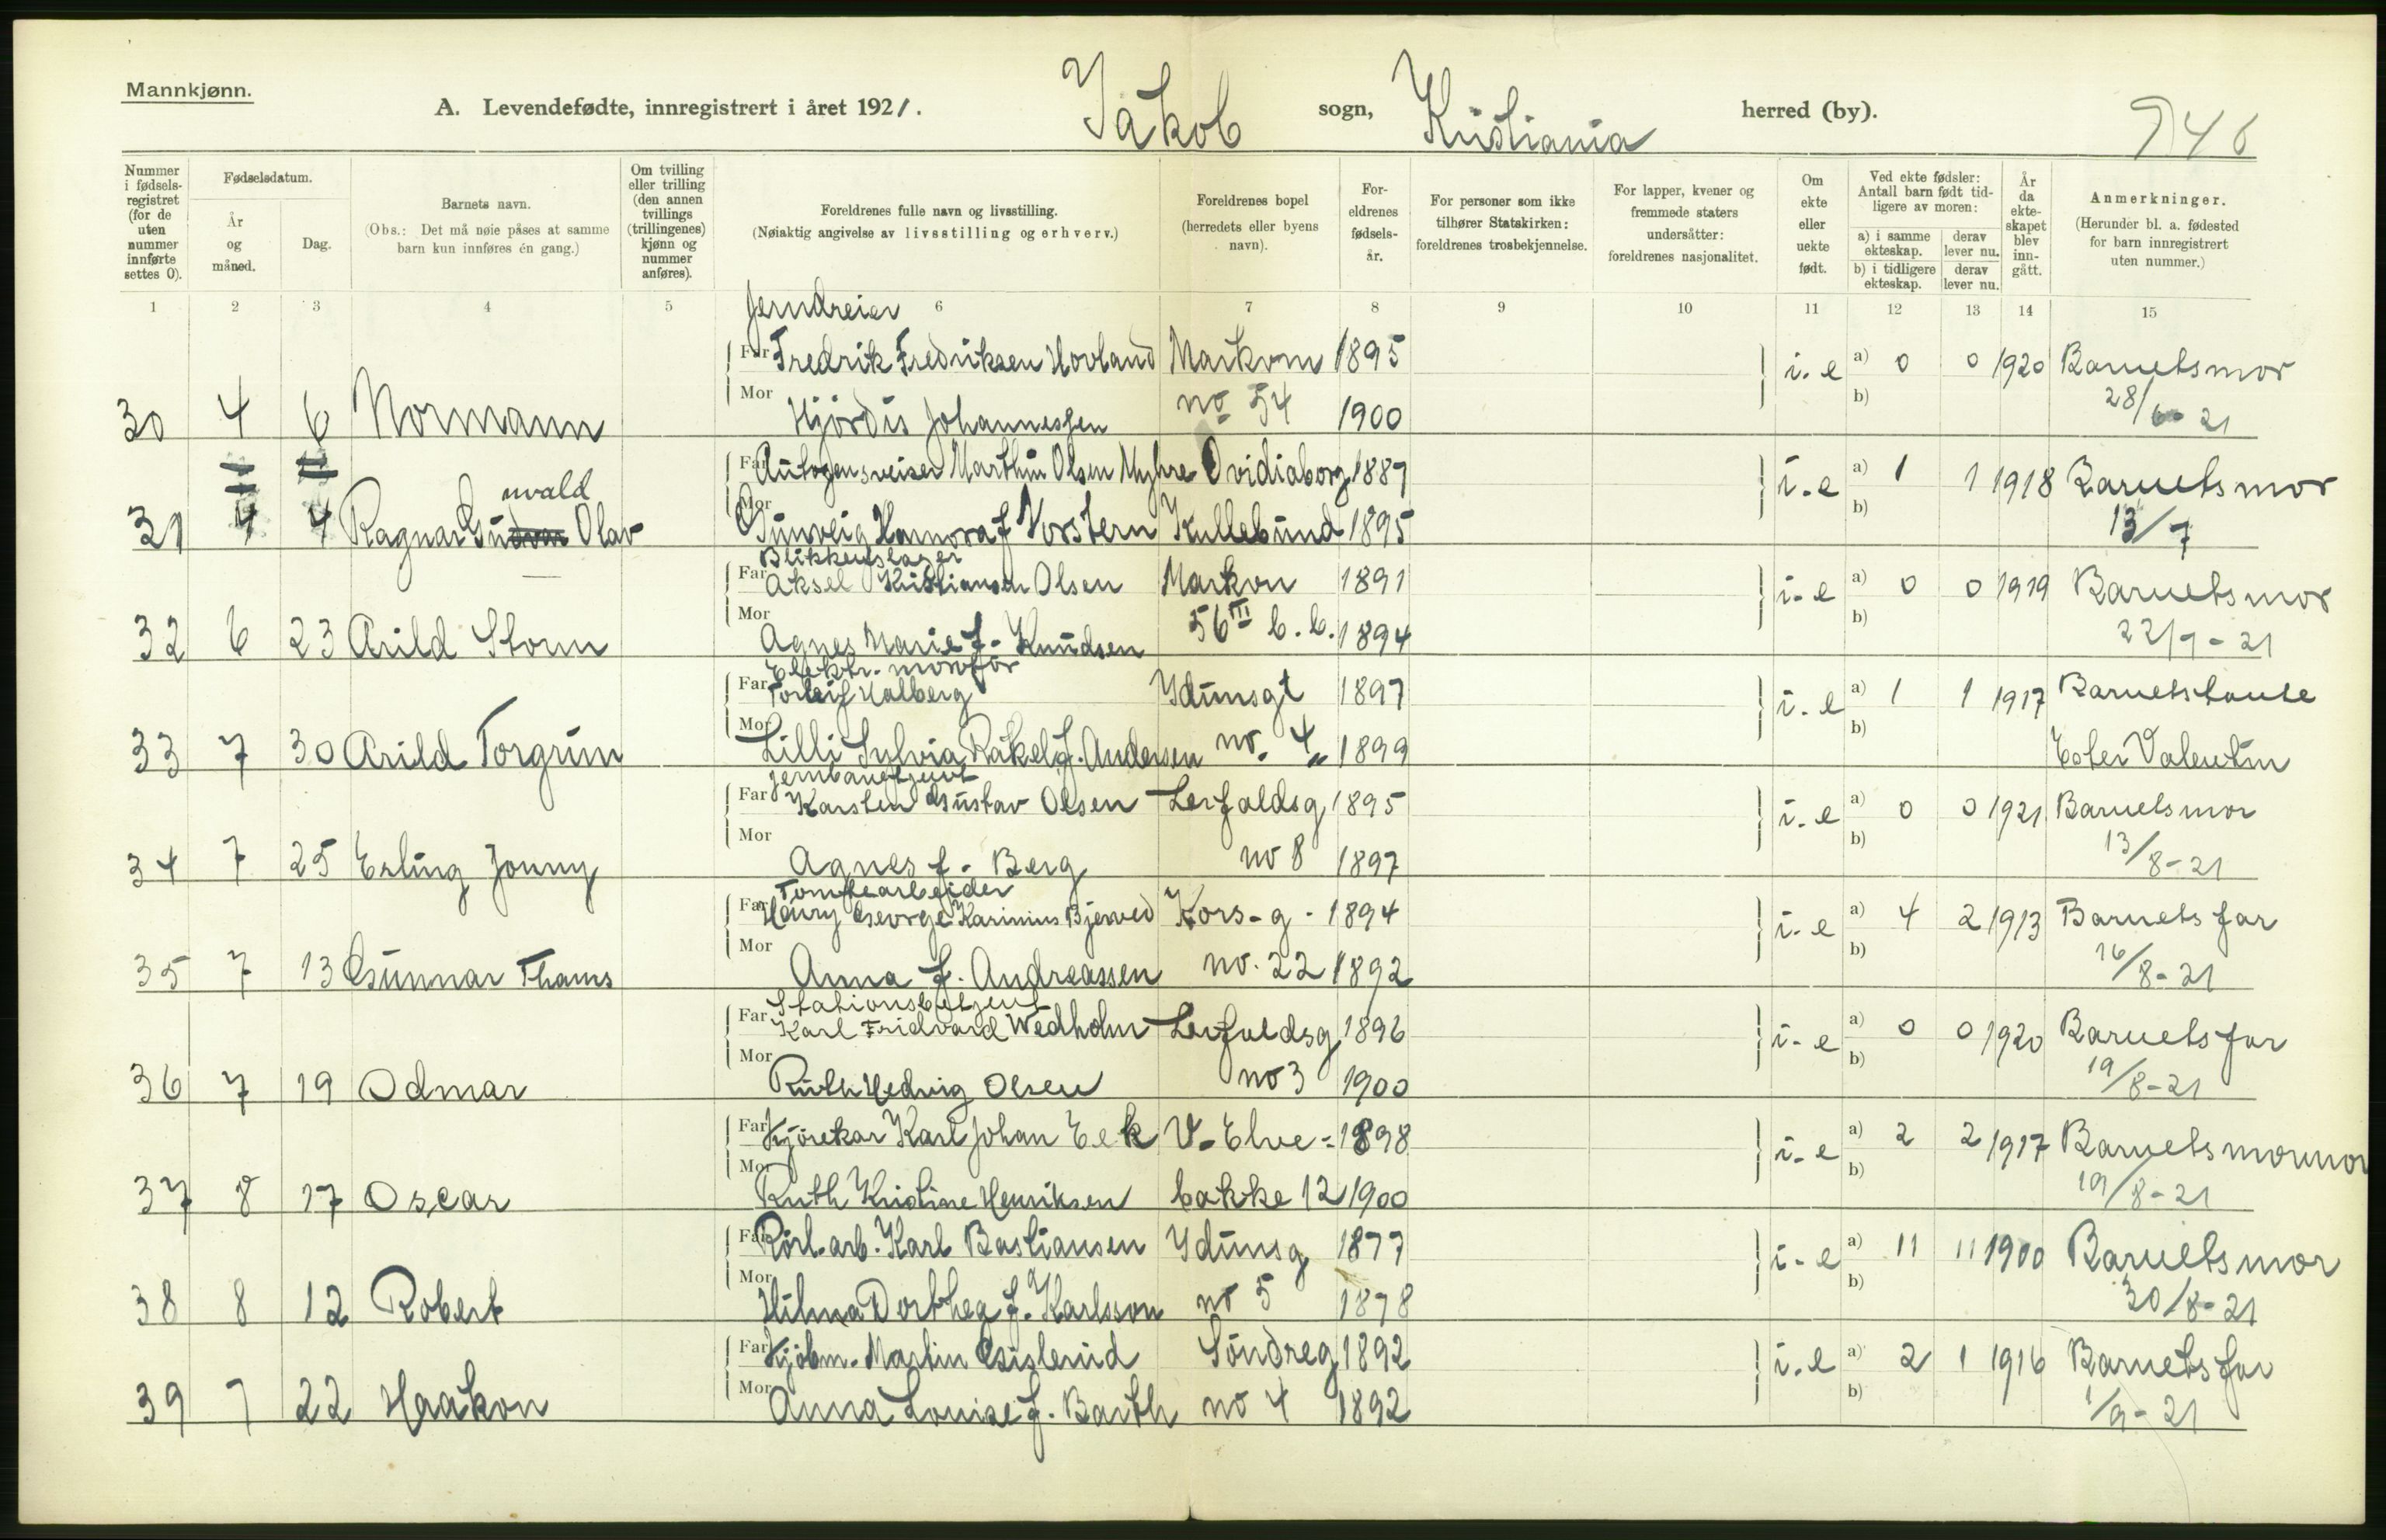 Mannkjønn.
A. Levendefødte, innregistrert i året 1921. Jakob sogn, Kristiania herred (by). 746
Nummer i fødselsregistret (for de uten nummer innførte settes 0).
Fødselsdatum.
År og måned.
Dag.
Barnets navn.
(Obs.: Det må nøie påses at samme barn kun innføres én gang.)
Om tvilling eller trilling (den annen tvillings (trillingenes) kjønn og nummer anføres).
Foreldrenes fulle navn og livsstilling.
(Nøiaktig angivelse av livsstilling og erhverv.)
Foreldrenes bopel
(herredets eller byens navn).
Foreldrenes fødselsår.
For personer som ikke tilhører Statskirken: foreldrenes trosbekjennelse.
For lapper, kvener og fremmede staters undersåtter: foreldrenes nasjonalitet.
Om ekte eller uekte født.
Ved ekte fødsler: Antall barn født tidligere av moren:
a) i samme ekteskap. derav lever nu.
b) i tidligere ekteskap. derav lever nu.
År da ekteskapet blev inngått.
Anmerkninger.
(Herunder bl. a. fødested for barn innregistrert uten nummer.)
1 2 3 4 5 6 7 8 9 10 11 12 13 14 15
Jerndreier
Far Fredrik Fredriksen Hovland Markvn 1895 i. e a) 0 0 1920 Barnets mor
30 4 6 Normann Mor Hjördis Johannessen no 54 1900 b) 28/6-21
Far Autogensveiser Marthin Olsen Myhre Ovidiaborg 1887 i. e a) 1 1 1918 Barnets mor
nvald
31 4 4 Ragnar Olav Mor f Vorstern Kullebund 1895 b) 13/7
Blikkenslager
Far Aksel Kristiansen Olsen Markvn 1891 i. e a) 0 0 1919 Barnets mor
32 6 23 Arild Storm Mor Agnes Marie f. Knudsen 56 III b. b. 1894 b) 22/7-21
Elektr. montör
Far Torleif Halberg Ydunsgt 1897 i. e a) 1 1 1917 Barnets tante
33 7 30 Arild Torgrim Mor Lilli Sylvia Rakel f. Andersen no. 4 1899 b) Ester Valentin
Jernbanebetjent
Far Karsten Gustav Olsen Leirfaldsg 1895 i. e a) 0 0 1921 Barnets mor
34 7 25 Erling Jonny Mor Agnes f. Berg no 8 1897 b) 13/8-21
Tomtearbeider
Far Henry George Karinius Bjerved Kors-g. 1894 i. e a) 4 2 1913 Barnets far
35 7 13 Gunnar Thams Mor Anna f. Andreassen no. 22 1892 b) 16/8-21
Stationsbetjent
Far Karl Fridvard Wedholm Leirfaldsg 1896 i. e a) 0 0 1920 Barnets far
36 7 19 Odmar Mor Ruth Hedvig Olsen no 3 1900 b) 19/8-21
Far Kjörekar Karl Johan Eek V. Elve= 1898 i. e a) 2 2 1917 Barnets mormor
37 8 17 Oscar Mor Ruth Kristine Henriksen bakke 12 1900 b) 19/8-21
Far Rörl. arb. Karl Bastiansen Ydunsg 1877 i. e a) 11 11 1900 Barnets mor
38 8 12 Robert Mor Hilma Dorthea f. Karlsson no 5 1878 b) 30/8-21
Far Kjöbm. Martin Gislerud Söndreg 1892 i. e a) 2 1 1916 Barnets far
39 7 22 Haakon Mor Anna Louise f. Barth no 4 1892 b) 1/9-21